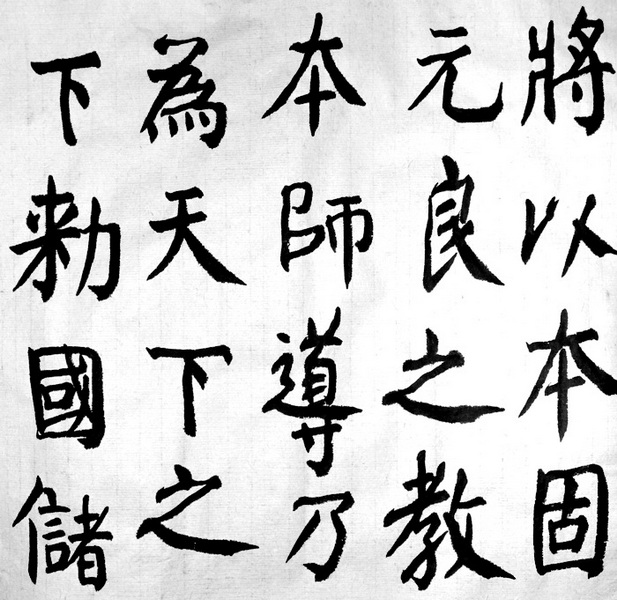 將以本固
元良之教
本師導乃
為天下之
下勑國儲